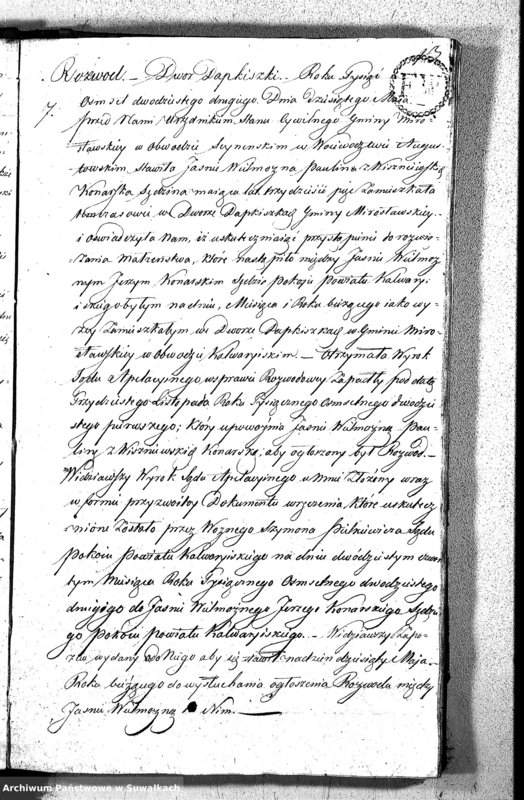 13
Rozwod. – Dwor Dapkiszki. – Roku Tysiąc
7. Osmset dwudziestego drugego. Dnia dziesiątego Maja
przed Nami Urzędnikiem Stanu Cywilnego Gminy Miro-
sławskiey w Obwodzie Seynenskim w Woiewodztwie Augus-
towskim stawiła Jaśnie Wielmożna Paulina z Wiszniewskich
Konarska Sędzina maiąca lat trzydzieści pięć Zamieszkała
w Dworze Dapkiszkach Gminy Mirosławskiey.
i oświadczyła Nam, iż uskuteczniaiąc przystąpienie do rozwią-
zania Małżeństwa, które zaszło między Jaśnie Wielmoż
nym Jerzym Konarskim Sędzią Pokoju Powiatu Kalwary-
iskiego byłym na dniu, Miesiąca i Roku bieżącego iako wy-
żey Zamieszkałym we Dworze Dapkiszkach w Gminie Miro-
sławskiey w obwodzie Kalwaryiskim – Otrzymała Wyrok
Sądu Apelacyjnego w sprawie Rozwodowey Zapadły pod datą
Trzydziestego Listopada Roku Tysiącznego Osmsetnego dwudzie
stego pierwszego; który upoważnia Jaśnie Wielmożną Pau-
linę z Wiszniewskich Konarską, aby ogłoszony był Rozwod. –
Widziawszy Wyrok Sądu Apelacyjnego u Mnie złożony wraz
w formie przyzwoitey Dokumentu wręczenia, które uskutecz
nione Zostało przez Woznego Szymona Sądu
Pokoiu Powiatu Kalwaryiskiego na dniu dwudziestym czwar
tym Miesiąca Roku Tysiącznego Osmsetnego dwudziestego
drugiego do Jaśnie Wielmożnego Jerzego Konarskiego Sędzie
go Pokoiu powiatu Kalwaryiskiego. – Widziawszy Zapo-
zew wydany do Niego aby się stawił na dzień dziesiąty Maja
Roku bieżącego do wysłuchania ogłoszenia Rozwodu między
Jaśnie Wielmożną a Nim. –
Archiwum Państwowe w Suwałkach